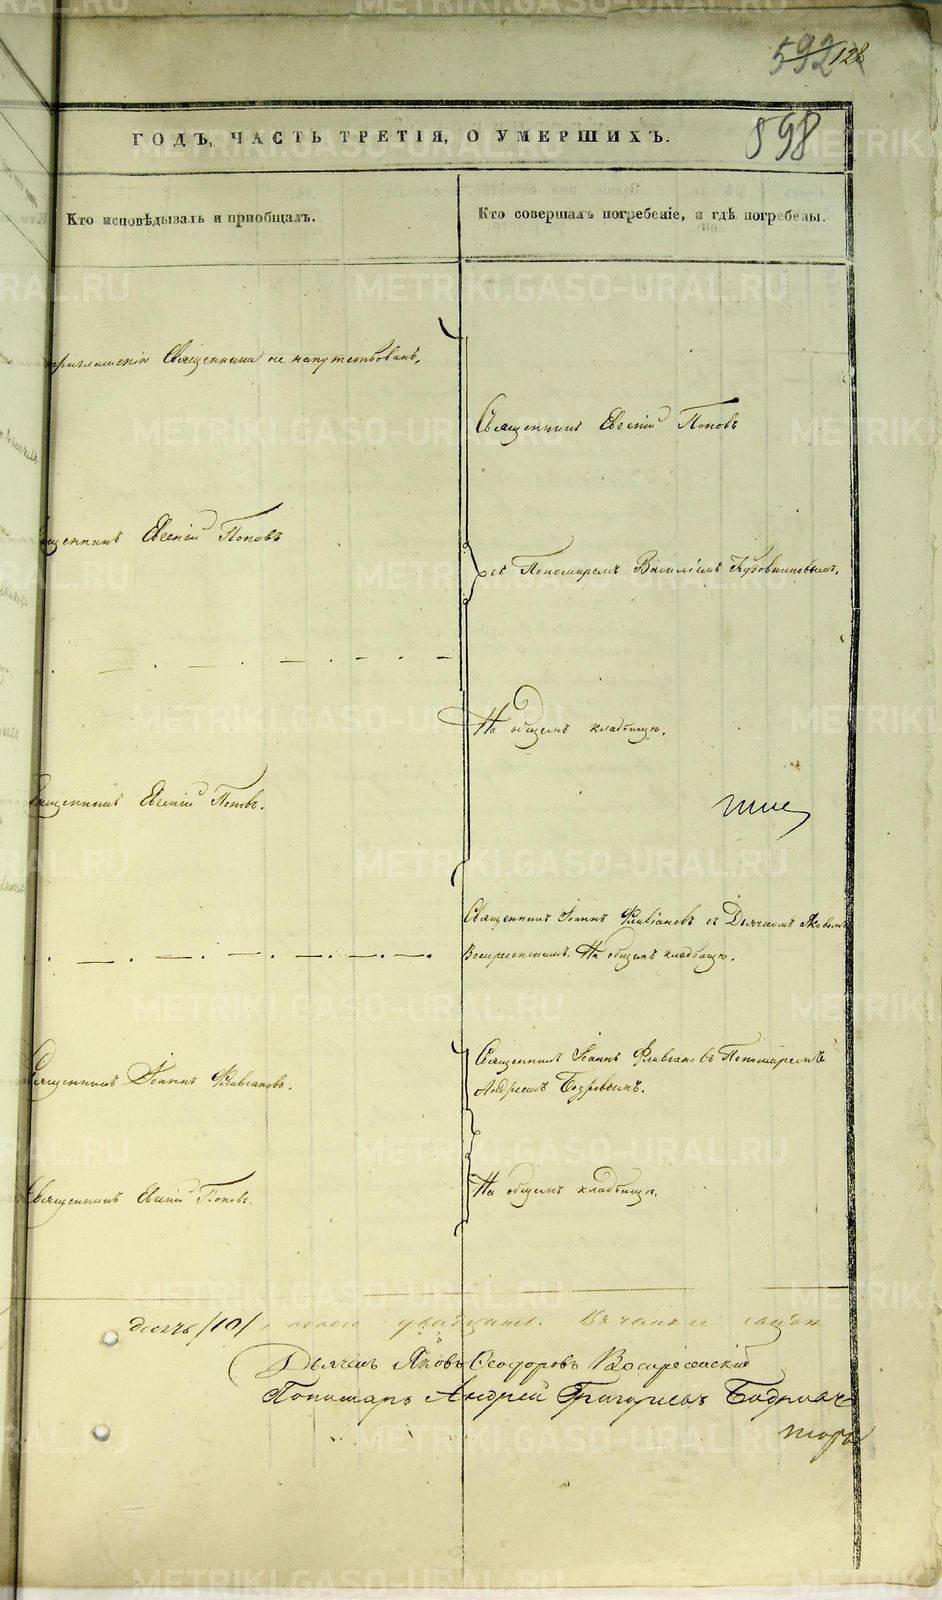 592 128
598
ГОДЪ, ЧАСТЬ ТРЕТІЯ, О УМЕРШИХЪ.
Кто исповѣдывалъ и приобщалъ.
Кто совершалъ погребеніе, и гдѣ погребены.
приглашенія Священника не напутствованъ.
Священникъ Евгеній Поповъ
щенникъ Евгеній Поповъ
съ Пономаремъ Василіемъ
На общемъ кладбищѣ.
Священникъ Евгеній Поповъ.
Священникъ Іоаннъ Флавіановъ съ Дьячкомъ Яковомъ
Воскресенскимъ. На общемъ кладбищѣ.
Священникъ Іоаннъ Флавіановъ.
Священникъ Іоаннъ Флавіановъ Пономаремъ
Андреемъ Бодровымъ.
Священникъ Евгеній Поповъ.
На общемъ кладбищѣ.
десять /10/,
Дьячекъ Яковъ Ѳеодоровъ Воскресенскій
Пономарь Андрей Григорьевъ
METRIKI.GASO-URAL.RU